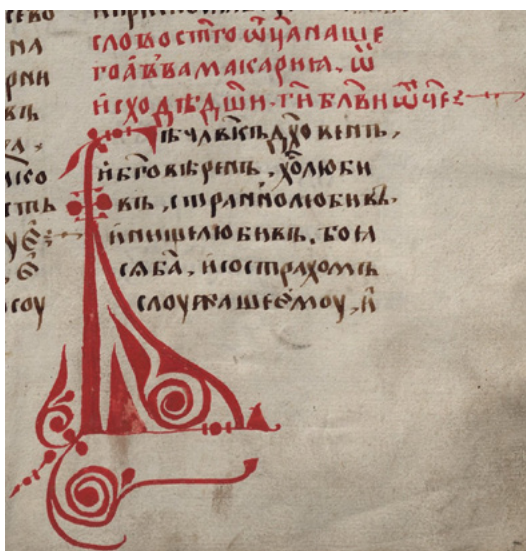 слово ст҃го ѿц҃а наше
го авва макариꙗ. ѿ
исходѣ дш҃и. г҃и бл҃ви ѿч҃е:
Бѣ чл҃вкь дх҃овень,
и бг҃овѣрень, хо҃люби
вь, страннолюбивь.
и нищелюбивь. боꙗ
сѧ ба҃, и со страхомь
слоужаше емоу, и